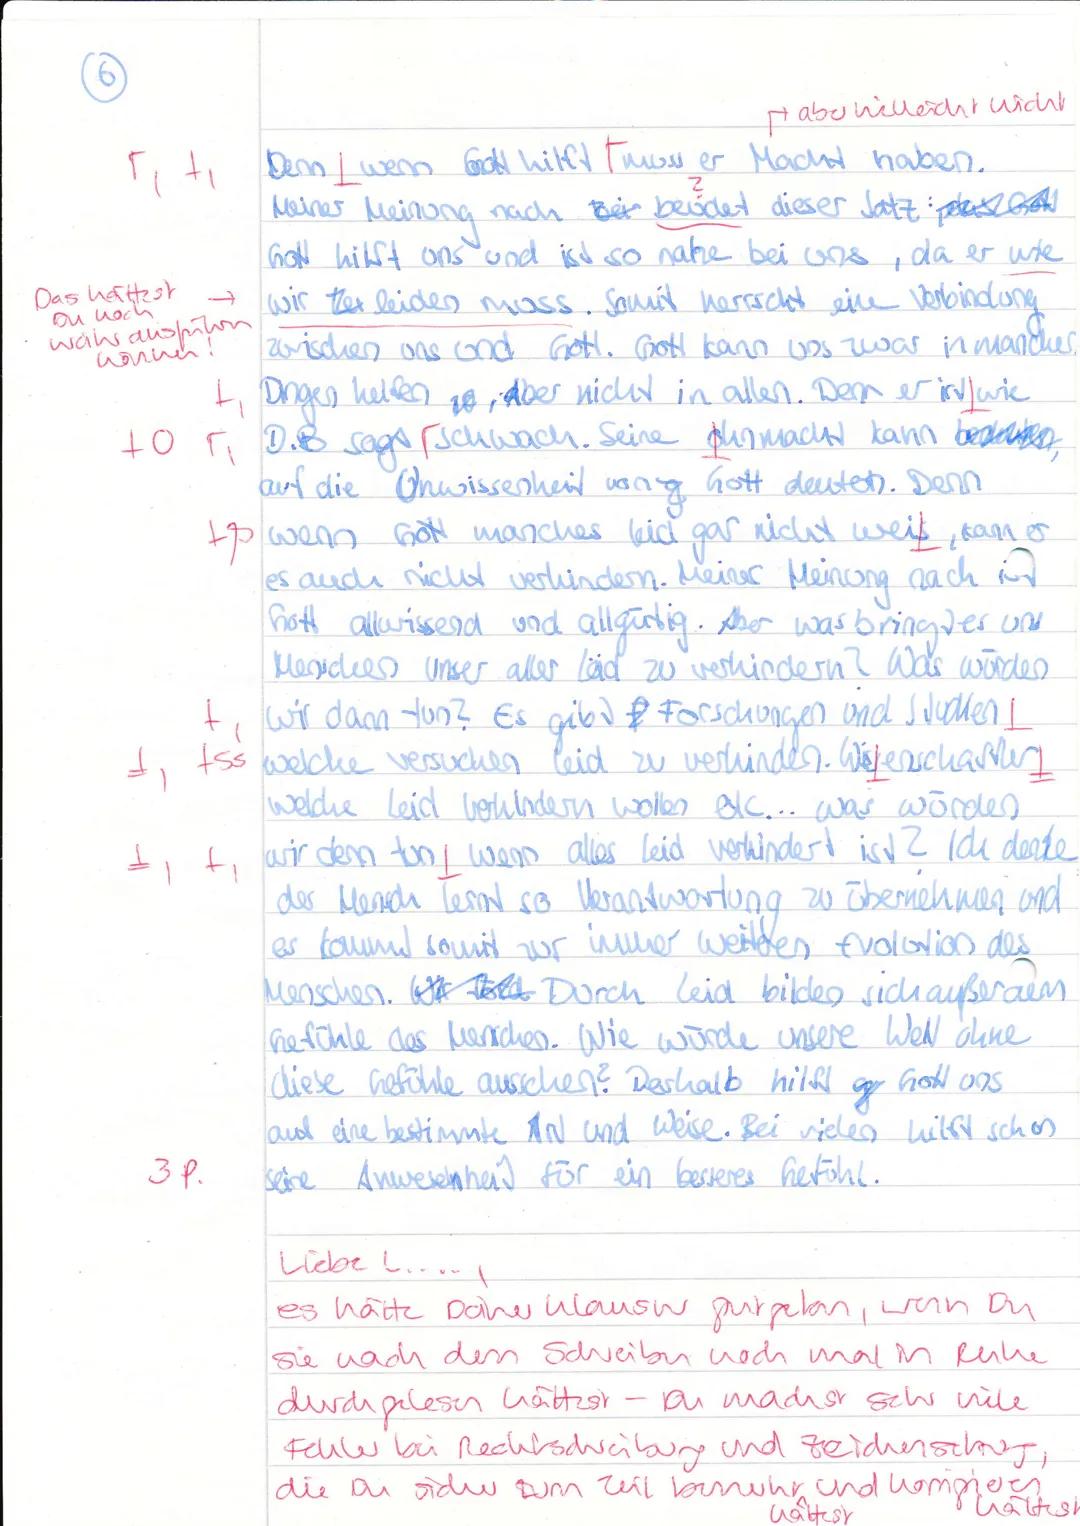 6
aber vielleicht nicht
Γ, +, Denn wenn Gott hilft muss er Macht haben.
?
Meiner Meinung nach bedodet dieser Satz:
Gott hilft uns und ist so nahe bei uns, da er wie
Das hättest → wir leiden muss. Somit herrscht eine Verbindung
Du noch
weiter ausführen
können!
zwischen uns und Gott. Gott kann uns zwar in manchen
+, Dingen helfen, aber nicht in allen. Denn er ist wie
+O Γ, D.B sagt schwach. Seine ohnmacht kann
auf die Unwissenheit von Gott deuten. Denn
+ß wenn Gott manches Leid gar nicht weis, kann er
es auch nicht verhindern. Meiner Meinung nach ist
Gott allwissend und allgütig. Aber was bringt es uns
Menschen unser aller Leid zu verhindern? Was würden
+, wir dann tun? Es gibt Forschungen und Studien
+, +ss welche versuchen Leid zu verhinden. Wisenschaftler
welche Leid verhindern wollen etc... was würden
+, +, wir denn tun wenn alles Leid verhindert ist? Ich denke
der Mensch lernt so Verantwortung zu übernehmen und
es kommt somit zur immer weiteren Evolution des
Menschen. Durch Leid bilden sich außerdem
Gefühle des Menschen. Wie würde unsere Welt ohne
diese Gefühle aussehen? Deshalb hilft Gott uns
auf eine bestimmte Art und Weise. Bei vielen hilft schon
3 P. seine Anwesenheit für ein besseres Gefühl.
Liebe L.....,
es hätte Deiner Klausur gutgetan, wenn Du
sie nach dem Schreiben noch mal in Ruhe
durchgelesen hättest – Du machst sehr viele
Fehler bei Rechtschreibung und Zeichensetzung,
die Du sicher zum Teil bemerkt und korrigieren
hättest hättest